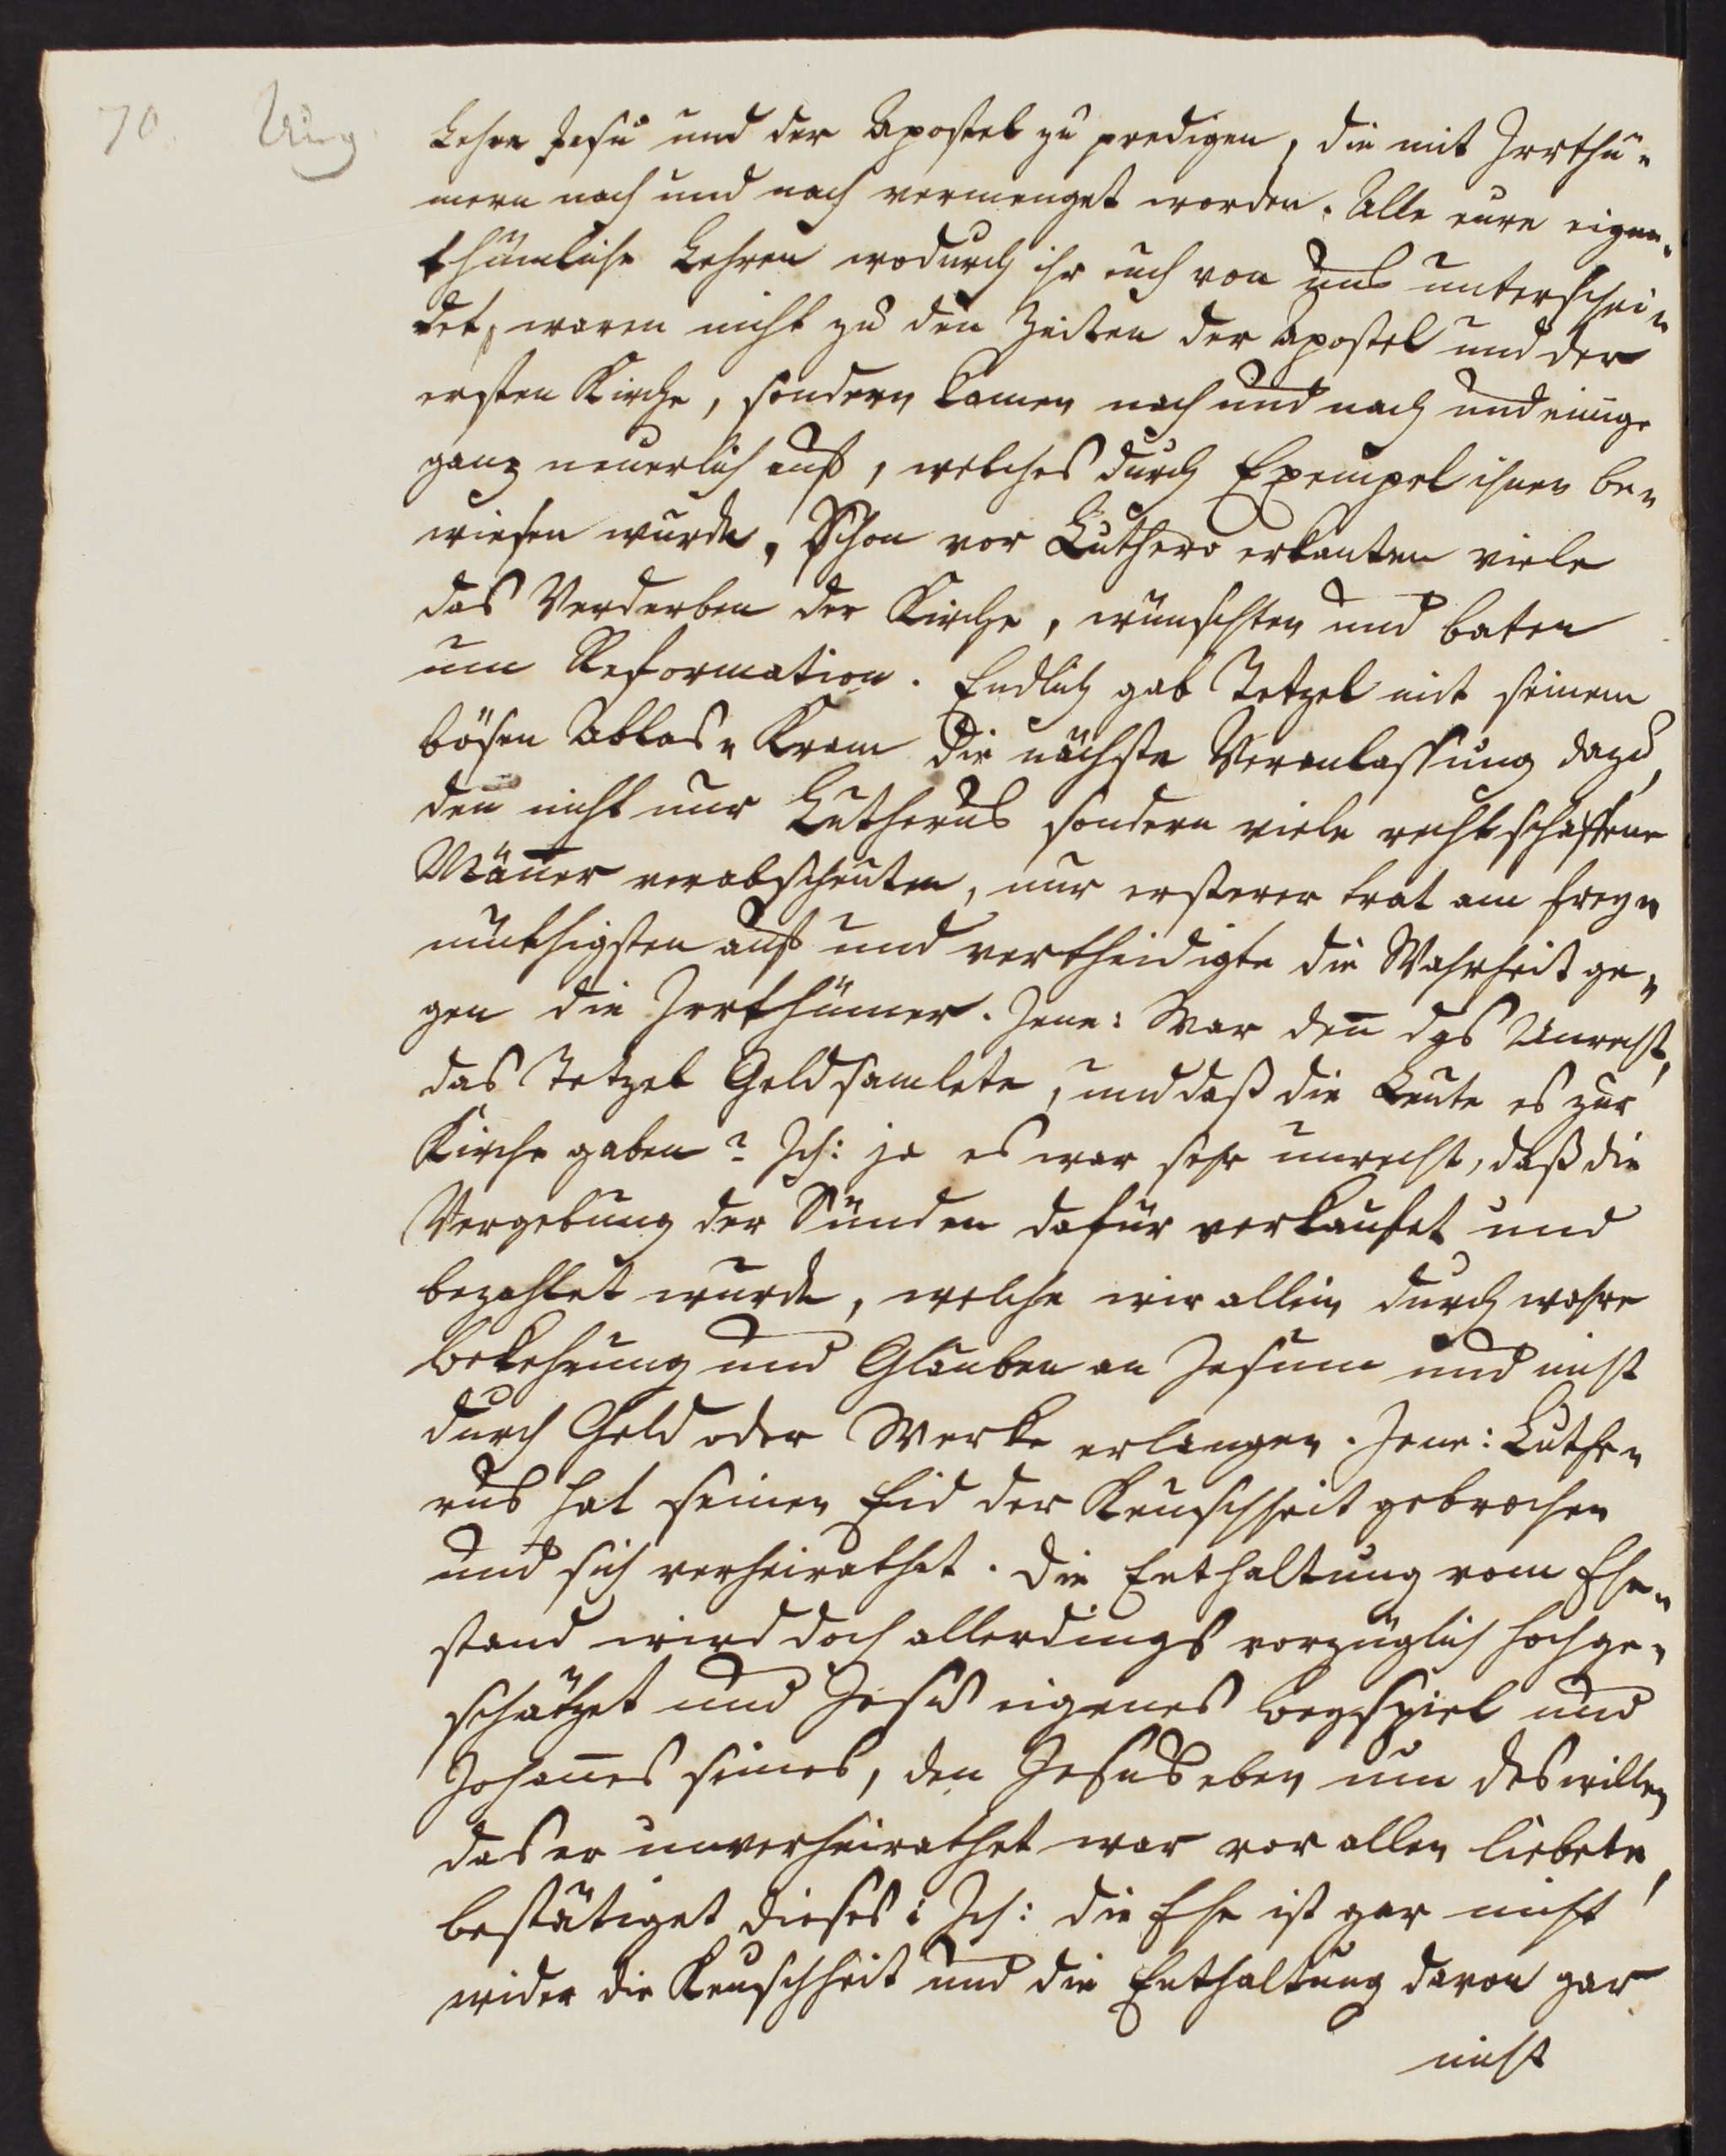 70. Ung.
Lehre Jesu und der Apostel zu predigen, die mit Irrthü-
mern nach und nach vermenget worden. Alle eure eigen-
thümliche Lehren wodurch ihr euch von uns unterschei-
det, waren nicht zu den Zeiten der Apostel und der
ersten Kirche, sondern kamen nach und nach und einige
ganz neuerlich auf, welches durch Exempel ihnen be-
wiesen wurde, Schon vor Luthero erkanten viele
das Verderben der Kirche, wünschten und baten
um Reformation. Endlich gab Tetzel mit seinem
bösen Ablas-Kram die nächste Veranlassung dazu,
den nicht nur Lutherus sondern viele rechtschaffene
Mäñer verabscheuten, nur ersterer trat am frey-
müthigsten auf und vertheidigte die Wahrheit ge-
gen die Irrthümer. Jene: War deñ das Unrecht,
das Tetzel Geld samlete, und daß die Leute es zur
Kirche gaben? Ich: ja es war sehr unrecht, daß die
Vergebung der Sünden dafür verkaufet und
bezahlet wurde, welche wir allein durch wahre
Bekehrung und Glauben an Jesum und nicht
durch Geld oder Werke erlangen. Jene: Luthe-
rus hat seinen Eid der Keuschheit gebrochen
und sich verheirathet. Die Enthaltung vom Ehe-
stand wird doch allerdings vorzüglich hochge-
schätzet und Jesus eigenes Beyspiel und
Johañes seines, den Jesus eben um deswillen
das er unverheirathet war vor allen liebete,
bestätiget dieses: Ich: die Ehe ist gar nicht
wider die Keuschheit und die Enthaltung davon gar
nicht